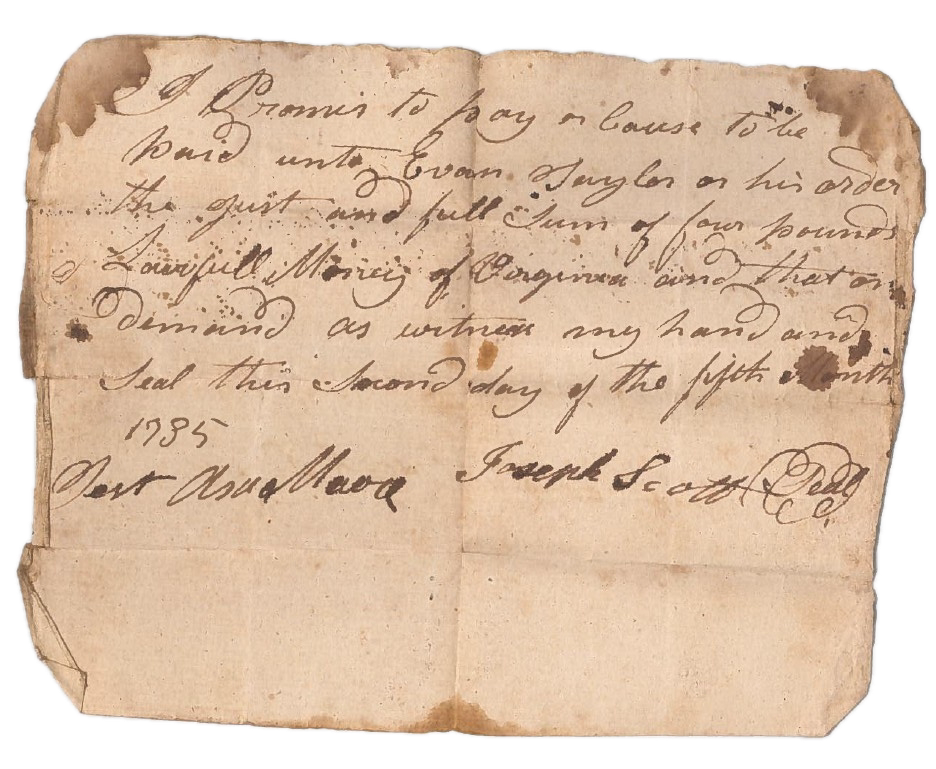 I Promis to pay or Cause to be
paid unto Evan Taylor or his order
the just and full Sum of four pounds
Lawfull Money of Virginia and that on
Demand as witness my hand and
Seal this Second day of the fifth Month
1785
Test Joseph Scott Seal